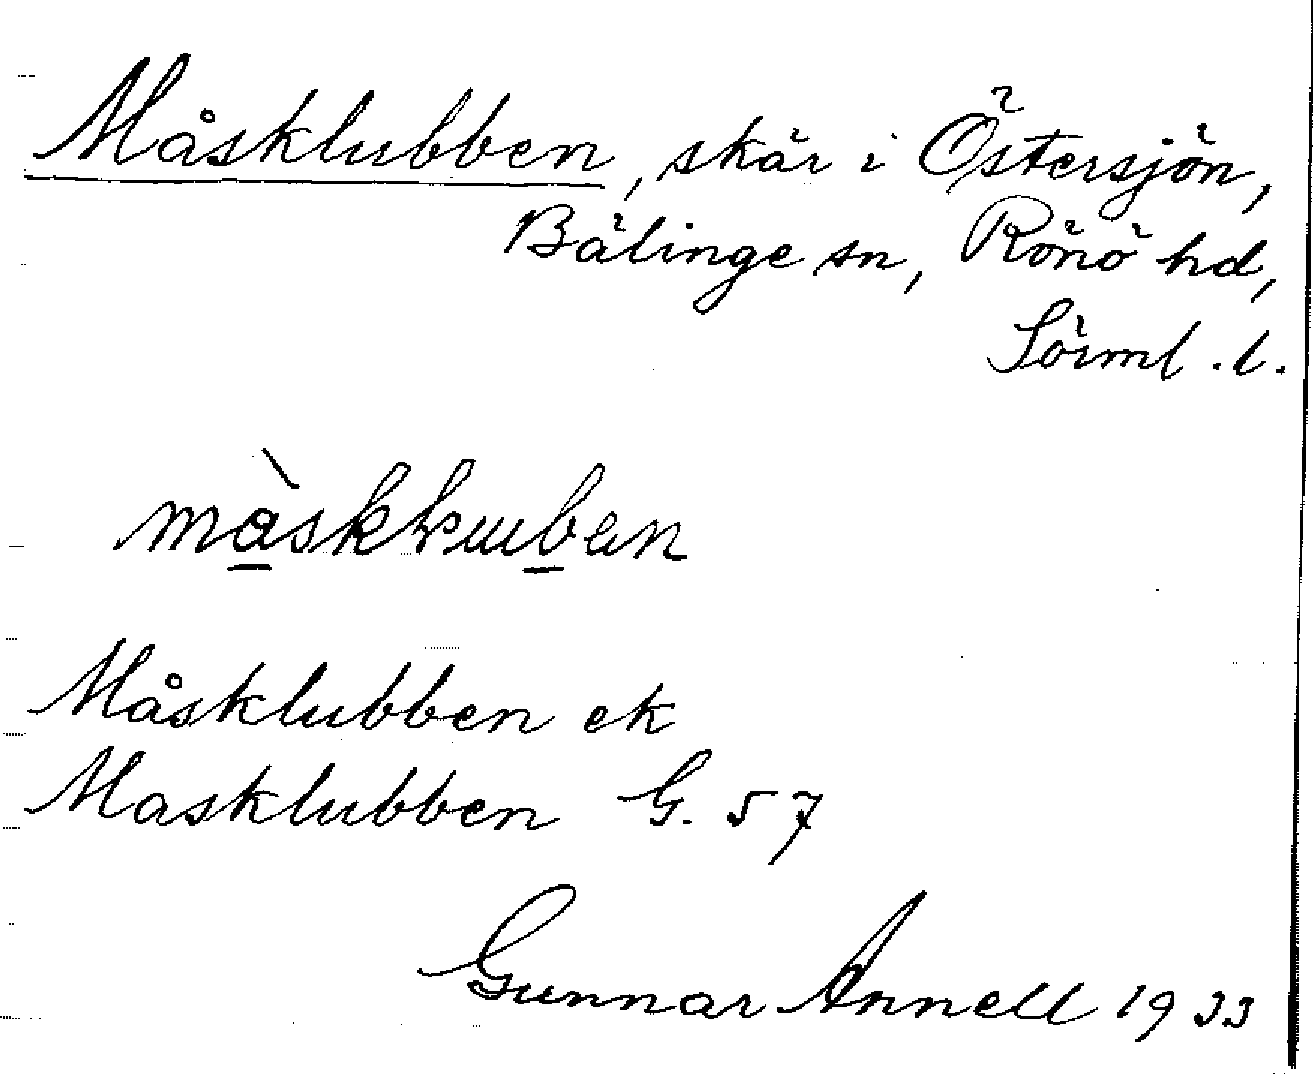 Måsklubben, skär i Östersjön,
Bälinge sn, Rönö hd,
Sörml. l.
Måsklubben ek
Masklubben G. 57
Gunnar Annell 1933